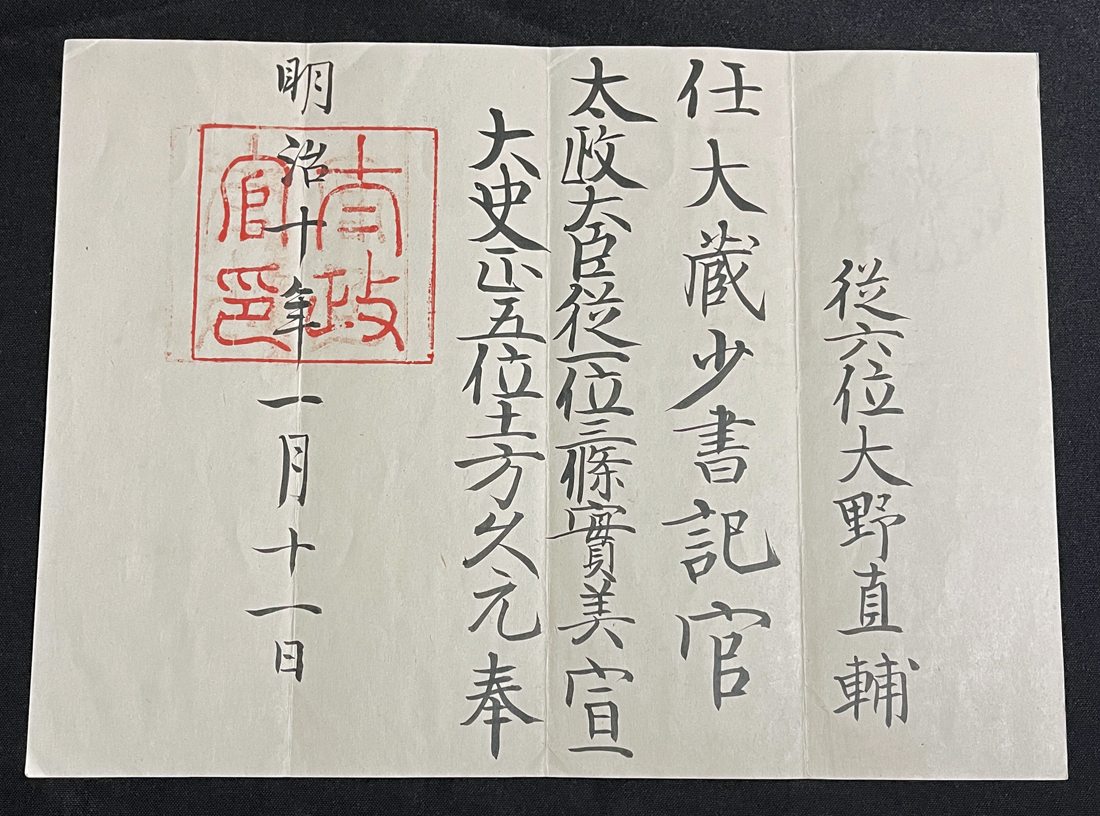 從六位大野直輔
任大蔵少書記官
太政大臣從一位三條實美宣
大史正五位土方久元奉
明治十年一月十一日
太政官印